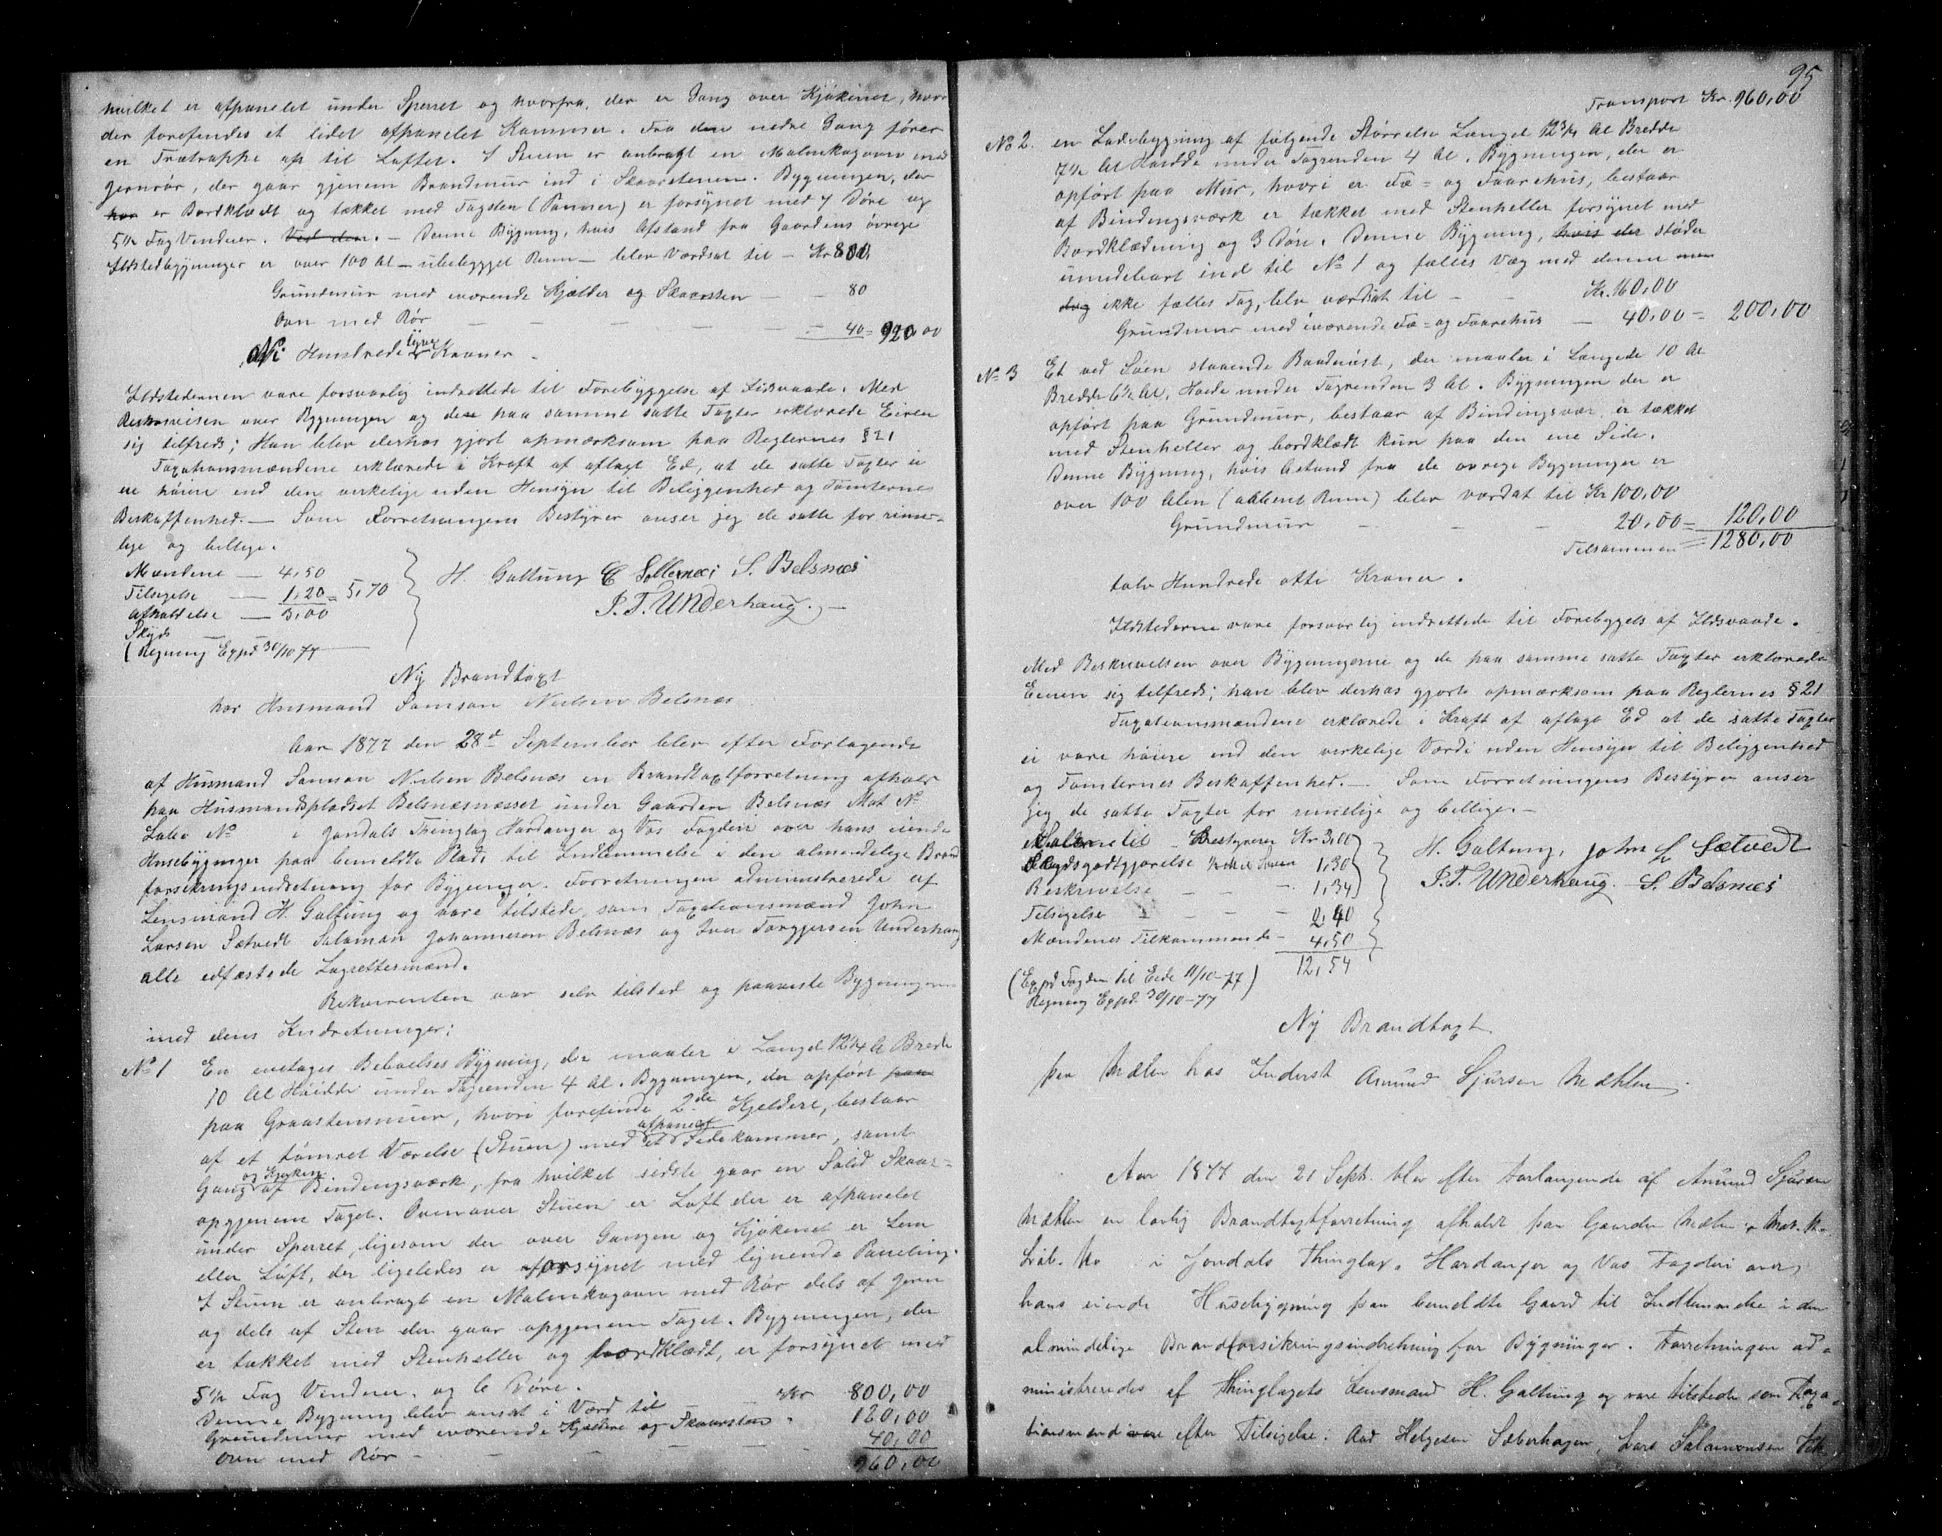 hvilket er afpanelet under Sperret og hvorfra der er Gang over Kjökenet, hvor
der forefindes et lidet afpanelet Kammer. Fra den nedre Gang förer
en Trætrappe op til Loftet. I Stuen er anbragt en Malmkagovn med
Jernrör, der gaar gjenem Brandmur ind i Skaarstenen. Bygningen, der
har er Bordklædt og tækket med Tagsten (Panner) er forsynet med 7 Döre og
5½ Fag Venduer. Ved den. - Denne Bygning, hvis Afstand fra Gaardens övrige
Ildstedbygninger er over 100 Al - ubebygget Rum - blev Værdsat til - Kr 800
Grundmur med iværende Kjælder og Skaarsten - - 80
Ovn med Rör - - - - - 40 = 920,00
Ni Hundrede tyve Kroner.
Ildstederne vare forsvarlig indrettede til Forebyggelse af Ildsvaade. Med
Beskrivelsen over Bygningen og den paa samme satte Taxter erklærede Eieren
sig tilfreds; Han blev derhos gjort opmærksom paa Reglernes § 21
Taxationsmændene erklærede i Kraft af aflagt Ed, at de satte Taxter ei
ere höiere end den virkelige uden Hensyn til Beliggenhed og Tomternes
Beskaffenhed. - Som Forretningens Bestyrer anser jeg de satte for rime-
lige og billige.
Mændene - 4,50
Tilsigelse - 1,20 = 5,70
Afholdelse - 3,00
Skyds
(Regning Expd 30/10 77
H. Galtung S. Belsnæs
P. T. Underhaug. -
Ny Brandtaxt
hos Husmand Samson Nielsen Belsnæs
Aar 1877 den 28de September blev efter Forlangende
af Husmand Samson Nielsen Belsnæs en Brandtaxtforretning afholdt
paa Husmandspladset Belsnæsnæsset under Gaarden Belsnæs Mat No
Löbe No i Jondals Thinglag Hardanger og Vos Fogderi over hans eiende
Husebygninger paa bemeldte Plads til Indlemmelse i den almindelige Brand
forsikringsindretning for Bygninger. Forretningen administrerede af
Lensmand H. Galtung og vare tilstede som Taxationsmænd John
Larsen Sætvedt Salamon Johannesen Belsnæs og Iver Torgjersen Underhaug
alle edfæstede Lagrettesmænd.
Rekvirenten var selv tilsted og paaviste Bygningerne
med dens Indretninger:
No 1 En enetages Beboelses Bygning, der maaler i Længd 12¼ Al Brede
10 Al Höidde under Tagrenden 4 Al. Bygningen, der opfört paa
paa Graastensmuer, hvori forefindes 2de Kjeldere, bestaar
af et tömret Værelse (Stuen) med et afpanelet Sidekammer, samt
Gang og Kjöken af Bindingsværk, fra hvilket sidste gaar en Solid Skaar-
opgjenem Taget. Ovenover Stuen er Loft der er afpanelet
under Sperret, ligesom der over Gangen og Kjökenet er Lem
eller Loft, der ligeledes er forsynet med lignende Paneling.
I Stuen er anbragt en Malmkagovn med Rör dels af Jern
og dels af Sten der gaar opgjenem Taget. Bygningen, der
er tækket med Stenheller og bordklædt, er forsynet med
5½ Fag Venduer, og 6 Döre.
Denne Bygning blev ansat i Værd til Kr 800,00
Grundmur med iværende Kjeldere og Skaarsten - 120,00
Ovn med Rör - - - 40,00
960,00
95
Transport Kr. 960,00
No 2. en Ladebygning af fölgende Störrelse Længd 12¾ Al Bredde
7½ Al Höidde under Tagrenden 4 Al. Bygningen, der er
opfört paa Mur, hvori er Fæ- og Faarehus, bestaar
af Bindingsværk er tækket med Stenheller forsynet med
Bordklædning og 3 Döre. Denne Bygning, hvis der stöder
umidelbart ind til No 1 og fælles Væg med denne men
dog ikke fælles Tag, blev værdsat til - - Kr. 160,00
Grundmur med iværende Fæ- og Faarehus - 40,00 = 200,00
No 3 Et ved Söen staaende Baadnöst, der maaler i Længde 10 Al
Bredde 6½ Al, Höide under Tagrenden 3 Al. Bygningen der er
opfört paa Grundmur, bestaar af Bindingsvær, er tækket
med Stenheller og bordklædt kun paa den ene Side.
Denne Bygning, hvis Afstand fra de övrige Bygninger er
over 100 Alen (aabent Rum) blev værdsat til Kr 100,00
Grundmur - - - 20,00 = 120,00
Tilsammen = 1280,00
tolv Hundrede otti Kroner.
Ildstederne vare forsvarlig indrettede til Forebyggels af Ildsvaade.
Med Beskrivelsen over Bygningerne og de paa samme satte Taxter erklærede
Eieren sig tilfreds; han blev derhos gjort opmærksom paa Reglernes § 21
Taxationsmændene erklærede i Kraft af aflagt Ed at de satte Taxter
ei vare höiere end den virkelige Værdi uden Hensyn til Beliggenhed
og Tomternes Beskaffenhed. - Som Forretningens Bestyrer anser
jeg de satte Taxter for rimelige og billige. -
til Bestyreren Kr. 3,00
Skydsgodtgjörelse 1,30
Beskrivelse - - - 1,34
Tilsigelse - - - 2,40
Mændenes Tilkommende - 4,50
12,54
(Expd Fogden til Eide 11/10-77)
Regning Expd. 30/10-77
H. Galtung, John L Sætvedt
P. T. Underhaug. - S. Belsnæs
Ny Brandtaxt.
paa Mælen hos Inderst Amund Sjursen Mæhlen.
Aar 1877 den 21 Sept. blev efter Forlangende af Amund Sjursen
Mæhlen en lovlig Brandtaxtforretning afholdt paa Gaarden Mælen Mat. No
Löb. No i Jondals Thinglag, Hardanger og Vos Fogderi over
hans eiende Husebygning paa bemeldte Gaard til Indlemmelse i den
almindelige Brandforsikringsindretning for Bygninger. Forretningen ad-
ministreredes af Thinglagets Lensmand H. Galtung og vare tilstede som Taxa-
tionsmænd vare efter Tilsigelse: Aad Helgesen Sæberhagen, Lars Salamonsen